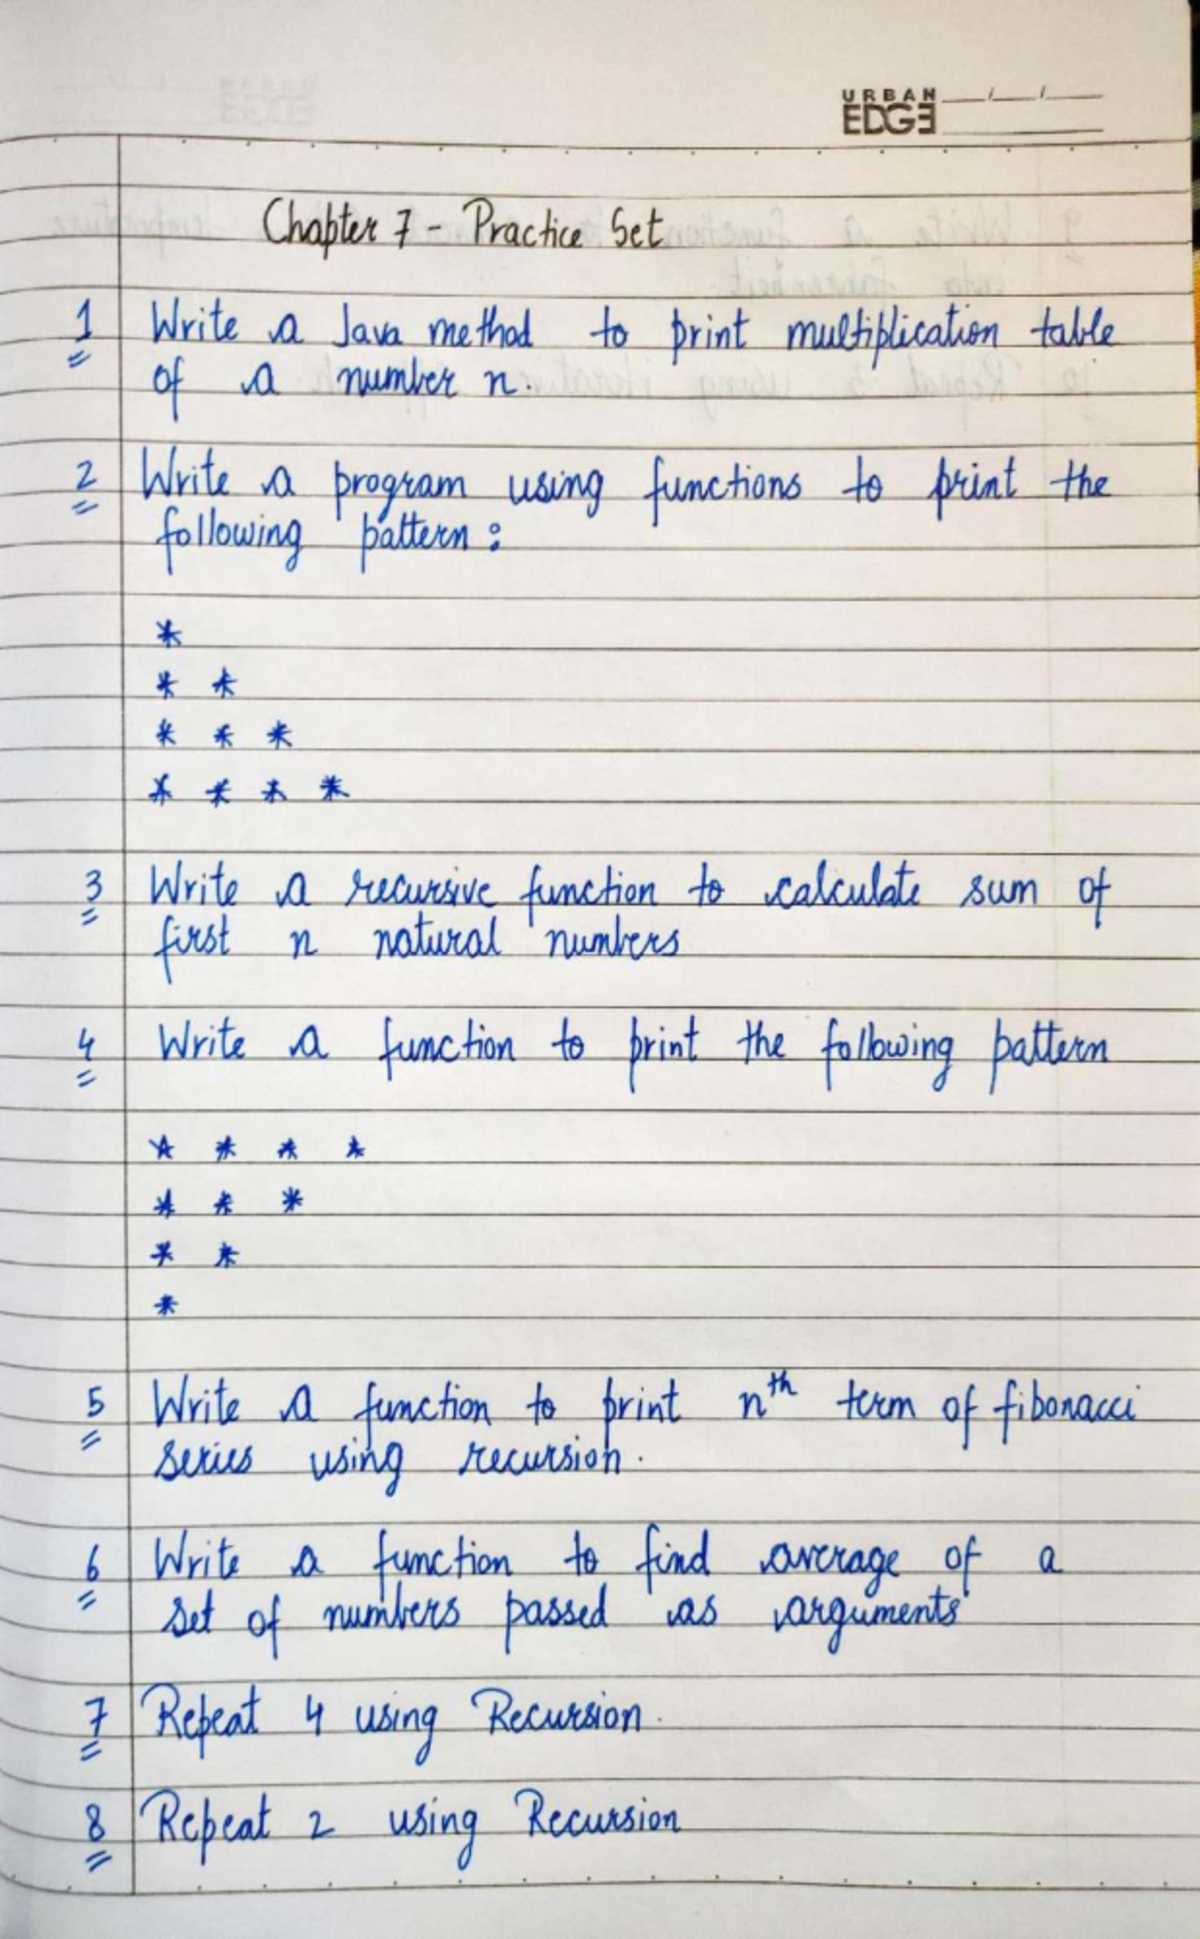 URBAN
EDGE
Chapter 7 - Practice Set
1 Write a Java method to print multiplication table
of a number n.
2 Write a program using functions to print the
following pattern :
*
* *
* * *
* * * *
3 Write a recursive function to calculate sum of
first n natural numbers
4 Write a function to print the following pattern
* * * *
* * *
* *
*
5 Write a function to print nth term of fibonacci
series using recursion.
6 Write a function to find average of a
set of numbers passed as arguments
7 Repeat 4 using Recursion.
8 Repeat 2 using Recursion